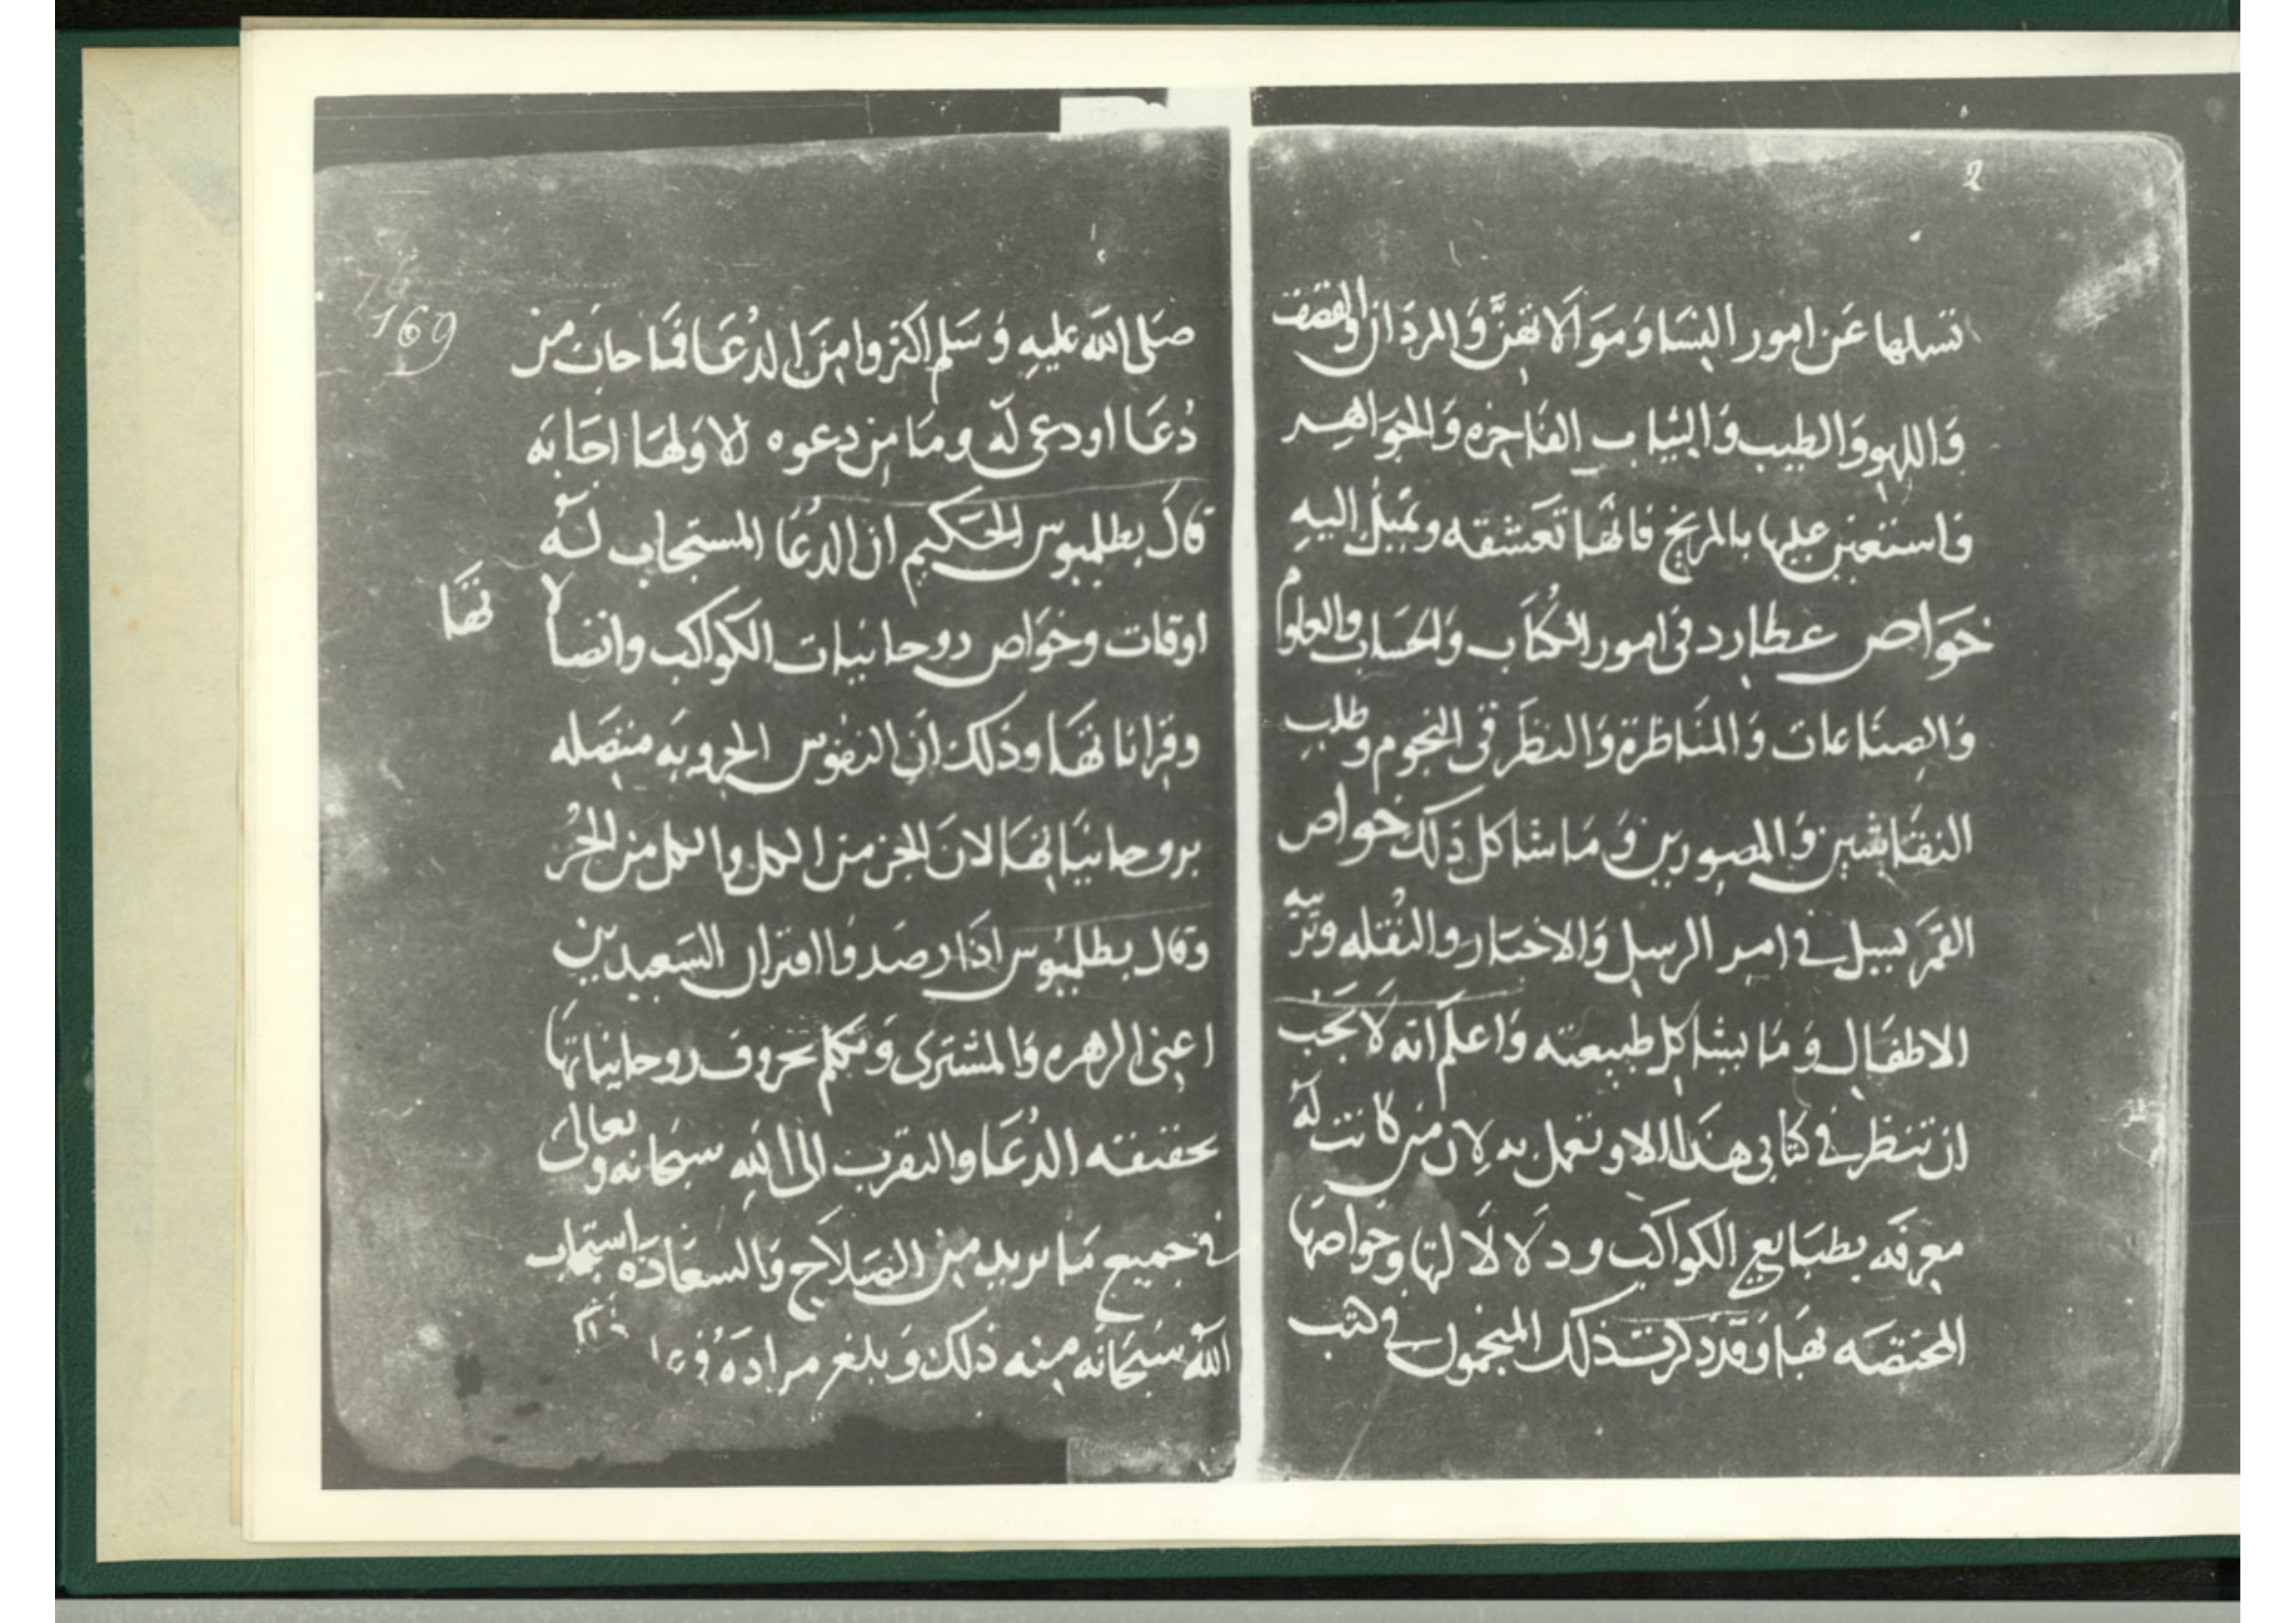 2
تسلها عن امور النسا ومو الاتهن والمردان والقصف
واللهو والطيب والثياب الفاخره والجواهر
فاستعين عليها بالمريخ فانها تعشقه وتميل اليه
خواص عطارد في امور الكتاب والحساب والعلوم
والصناعات والمناظرة والنظر في النجوم وطلب
النقاشين والمصورين وما شاكل ذلك خواص
القمر يسيل في امر الرسل والاخبار والنقله وتربيه
الاطفال وما يشاكل طبيعته واعلم انه لا يجب
ان تنظر في كتابي هذا الا وتعمل به لان من كانت له
معرفه بطبايع الكواكب ودلالالتها وخواصها
المختصه بها وقد ذكرت ذلك المنجمون في كتب
169
صلى الله عليه وسلم اكثروا من الدعا فما خاب من
دعا او دعى له وما من دعوه الا ولها اجابه
قال بطلميوس الحكيم ان الدعا المستجاب له
اوقات وخواص روحانيات الكواكب واتصالاتها
وقراناتها وذلك ان النفوس الجزويه متصله
بروحانياتها لان الجز من الكل والكل من الجز
وقال بطلميوس اذا رصدوا اقتران السعيدين
اعنى الزهره والمشترى وتكلم بحروف روحانياتها
بحقيقه الدعا والتقرب الى الله سبحانه وتعالى
في جميع ما يريد من الصلاح والسعادة استجاب
الله سبحانه منه ذلك وبلغ مراده